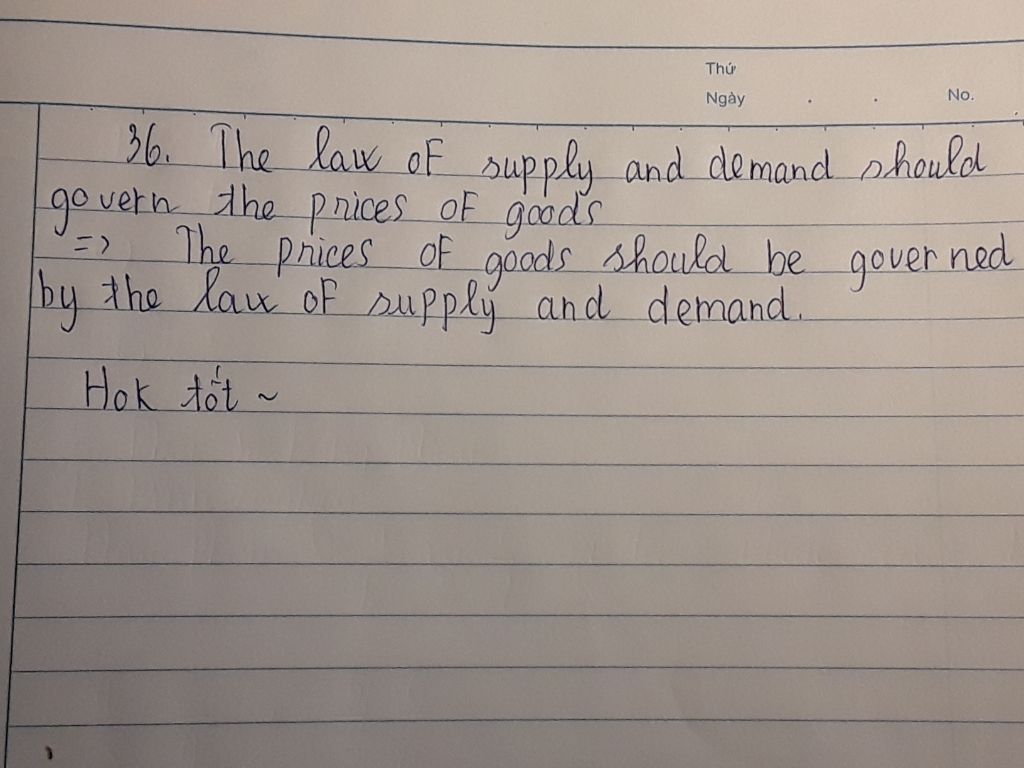 Thứ
Ngày . . No.
36. The law of supply and demand should
govern the prices of goods
=> The prices of goods should be governed
by the law of supply and demand.
Hok tốt ~